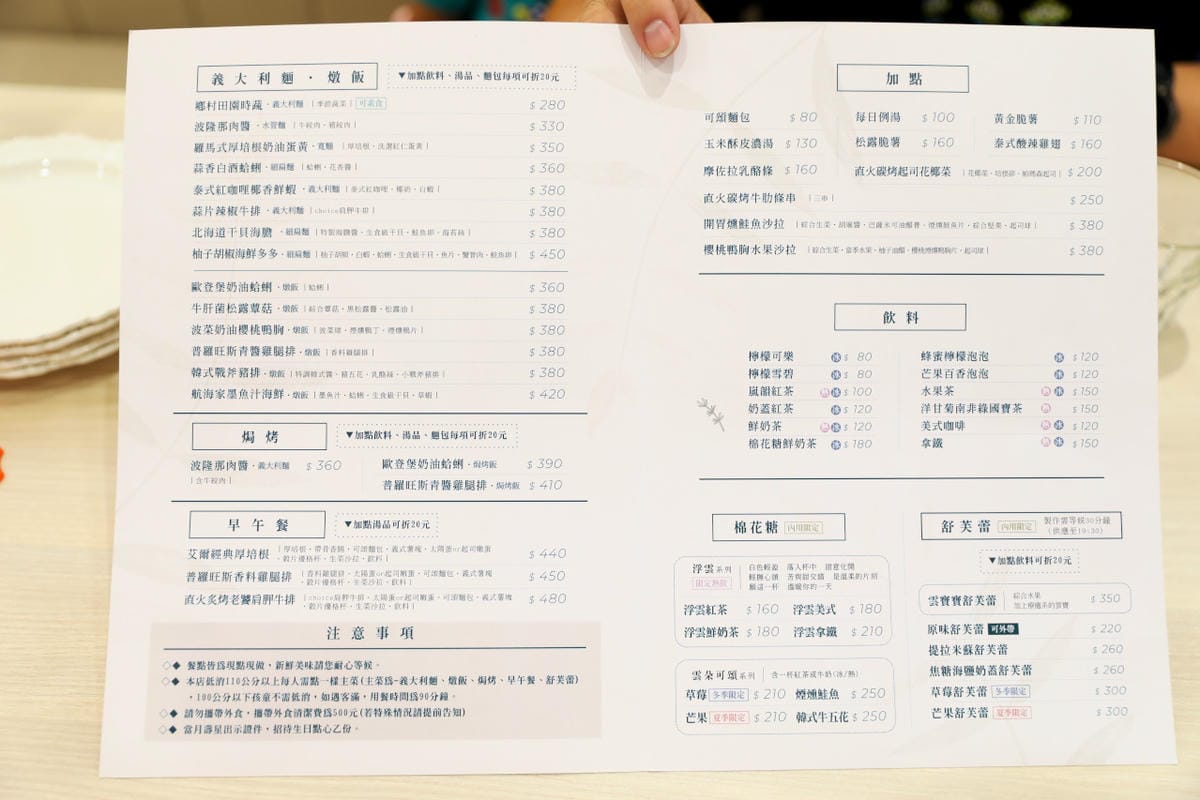 義大利麵・燉飯
▼加點飲料、湯品、麵包每項可折20元
鄉村田園時蔬・義大利麵 |季節蔬菜| 可素食 $ 280
波隆那肉醬・水管麵 |牛絞肉、豬絞肉| $ 330
羅馬式厚培根奶油蛋黃・寬麵 |厚培根、洗選紅仁蛋黃| $ 350
蒜香白酒蛤蜊・細扁麵 |蛤蜊、花香醬| $ 360
泰式紅咖哩椰香鮮蝦・義大利麵 |泰式紅咖哩、椰奶、白蝦| $ 380
蒜片辣椒牛排・義大利麵 |choice肩胛牛排| $ 380
北海道干貝海膽・細扁麵 |特製海膽醬、生食級干貝、鮭魚卵、海苔絲| $ 380
柚子胡椒海鮮多多・細扁麵 |柚子胡椒、白蝦、蛤蜊、生食級干貝、魚片、蟹管肉、鮭魚卵| $ 450
歐登堡奶油蛤蜊・燉飯 |蛤蜊| $ 360
牛肝菌松露蕈菇・燉飯 |綜合蕈菇、黑松露醬、松露油| $ 380
波菜奶油櫻桃鴨胸・燉飯 |波菜球、煙燻鴨丁、煙燻鴨片| $ 380
普羅旺斯青醬雞腿排・燉飯 |香料雞腿排| $ 380
韓式戰斧豬排・燉飯 |特調韓式醬、豬五花、乳酪絲、小戰斧豬排| $ 380
航海家墨魚汁海鮮・燉飯 |墨魚汁、蛤蜊、生食級干貝、草蝦| $ 420
焗烤
▼加點飲料、湯品、麵包每項可折20元
波隆那肉醬・義大利麵 $ 360
|含牛絞肉|
歐登堡奶油蛤蜊・焗烤飯 $ 390
普羅旺斯青醬雞腿排・焗烤飯 $ 410
早午餐
▼加點湯品可折20元
艾爾經典厚培根 |厚培根、帶骨香腸、可頌麵包、義式薯塊、太陽蛋or起司嫩蛋
、穀片優格杯、生菜沙拉、飲料| $ 440
普羅旺斯香料雞腿排 |香料雞腿排、太陽蛋or起司嫩蛋、可頌麵包、義式薯塊
、穀片優格杯、生菜沙拉、飲料| $ 450
直火炙烤老饕肩胛牛排 |choice肩胛牛排、太陽蛋or起司嫩蛋、可頌麵包、義式薯塊
、穀片優格杯、生菜沙拉、飲料| $ 480
注意事項
◇◆ 餐點皆為現點現做，新鮮美味請您耐心等候。
◇◆ 本店低消110公分以上每人需點一樣主菜(主菜為-義大利麵、燉飯、焗烤、早午餐、舒芙蕾)
，100公分以下孩童不需低消，如遇客滿，用餐時間為90分鐘。
◇◆ 請勿攜帶外食，攜帶外食清潔費為500元(若特殊情況請提前告知)
◇◆ 當月壽星出示證件，招待生日點心乙份。
加點
可頌麵包 $ 80 每日例湯 $ 100 黃金脆薯 $ 110
玉米酥皮濃湯 $ 130 松露脆薯 $ 160 泰式酸辣雞翅 $ 160
摩佐拉乳酪條 $ 160 直火碳烤起司花椰菜 |花椰菜、培根碎、帕瑪森起司| $ 200
直火碳烤牛肋條串 |三串| $ 250
開胃燻鮭魚沙拉 |綜合生菜、胡麻醬、巴薩米可油醋膏、煙燻鮭魚片、綜合堅果、起司球| $ 380
櫻桃鴨胸水果沙拉 |綜合生菜、當季水果、柚子油醋、櫻桃煙燻鴨胸片、起司球| $ 380
飲料
檸檬可樂 冰 $ 80 蜂蜜檸檬泡泡 冰 $ 120
檸檬雪碧 冰 $ 80 芒果百香泡泡 冰 $ 120
嵐韻紅茶 熱 冰 $ 100 水果茶 熱 冰 $ 150
奶蓋紅茶 冰 $ 120 洋甘菊南非綠國寶茶 熱 $ 150
鮮奶茶 熱 冰 $ 120 美式咖啡 熱 冰 $ 120
棉花糖鮮奶茶 冰 $ 180 拿鐵 熱 冰 $ 150
棉花糖 內用限定
浮雲系列
限定熱飲
白色輕盈 落入杯中 甜意化開
輕撫心頭 苦與甜交錯 是溫柔的片刻
願這一杯 溫暖你的一天
浮雲紅茶 $ 160 浮雲美式 $ 180
浮雲鮮奶茶 $ 180 浮雲拿鐵 $ 210
雲朵可頌系列 | 含一杯紅茶或牛奶(冰/熱)
草莓 冬季限定 $ 210 煙燻鮭魚 $ 250
芒果 夏季限定 $ 210 韓式牛五花 $ 250
舒芙蕾 內用限定 製作需等候30分鐘
(供應至19:30)
▼加點飲料可折20元
雲寶寶舒芙蕾 綜合水果
加上療癒系的雲寶 $ 350
原味舒芙蕾 可外帶 $ 220
提拉米蘇舒芙蕾 $ 260
焦糖海鹽奶蓋舒芙蕾 $ 260
草莓舒芙蕾 冬季限定 $ 300
芒果舒芙蕾 夏季限定 $ 300